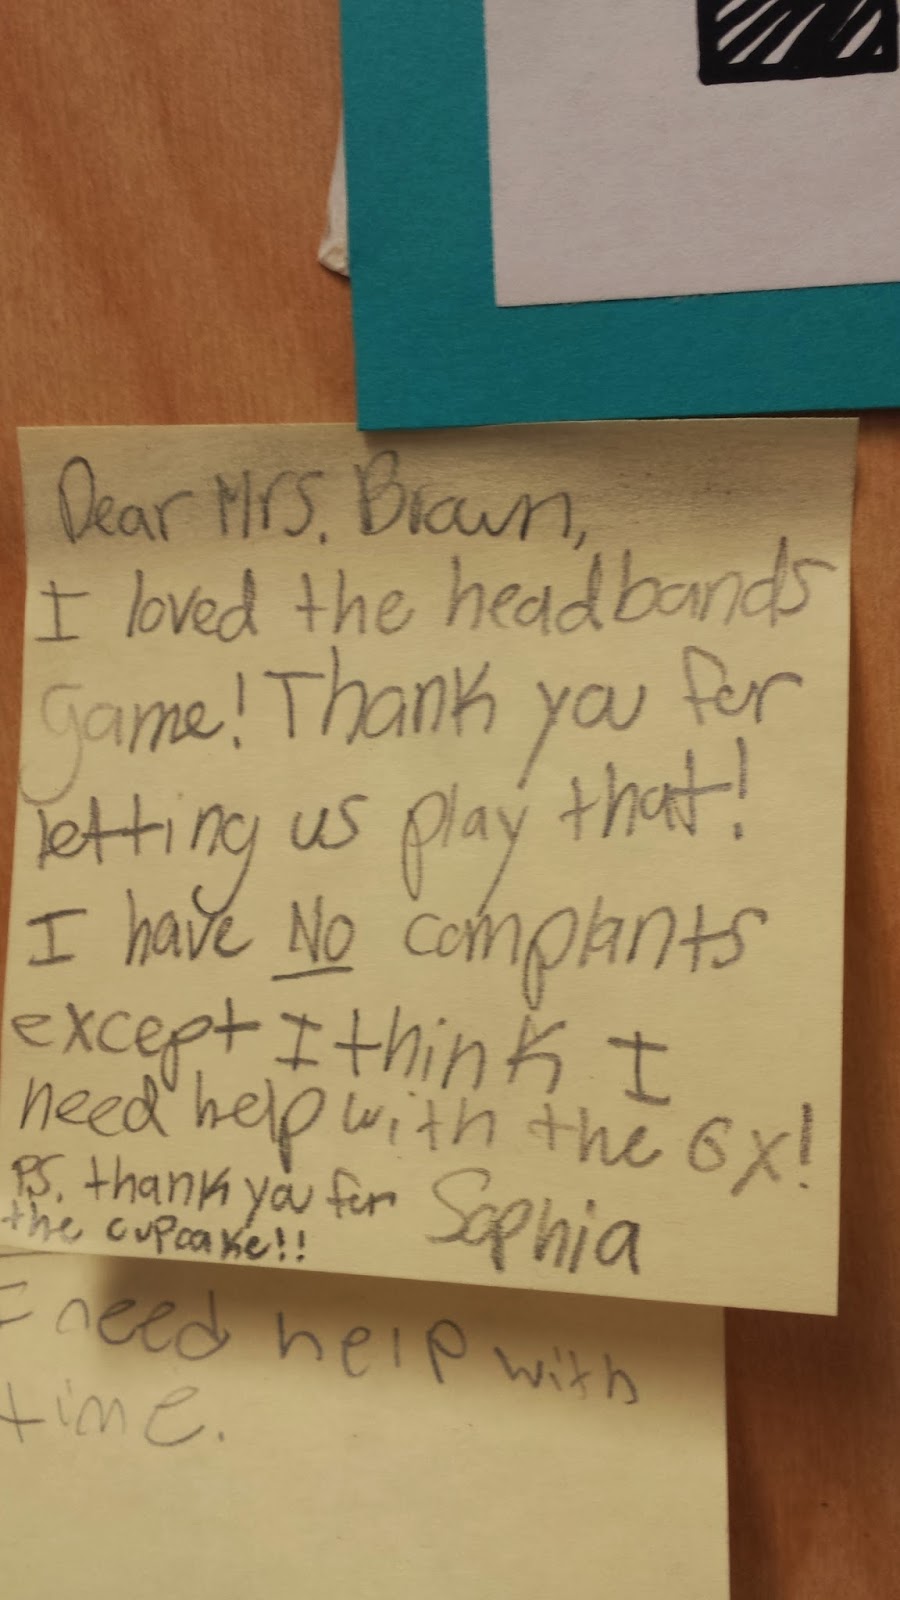 Dear Mrs. Brown,
I loved the headbands
game! Thank you for
letting us play that!
I have No complants
except I think I
need help with the 6x!
PS. thank you for
the cupcake!!
Sophia
I need help with
time.